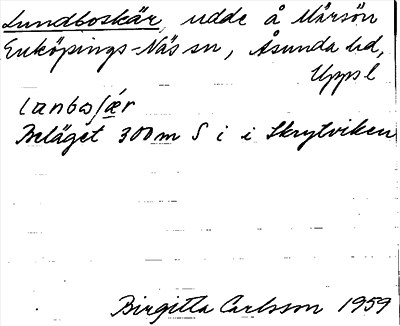 Lundboskär, udde å Mårsön
Enköpings-Näs sn, Åsunda hd,
Uppl
Beläget 300 m S i i Skrytviken
Birgitta Carlsson 1959